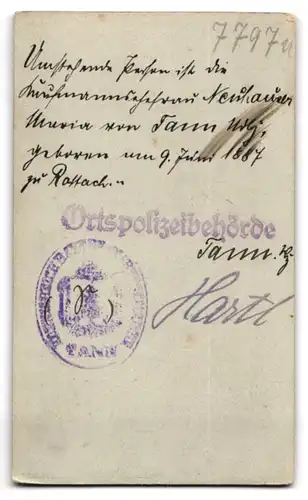 7797
Umstehende Person ist die
Kaufmannsehefrau Neuhauser
Maria von Tann Ndb.
geboren am 9. Juni 1887
zu Rottach.
Ortspolizeibehörde
Tann
Hartl
TANN